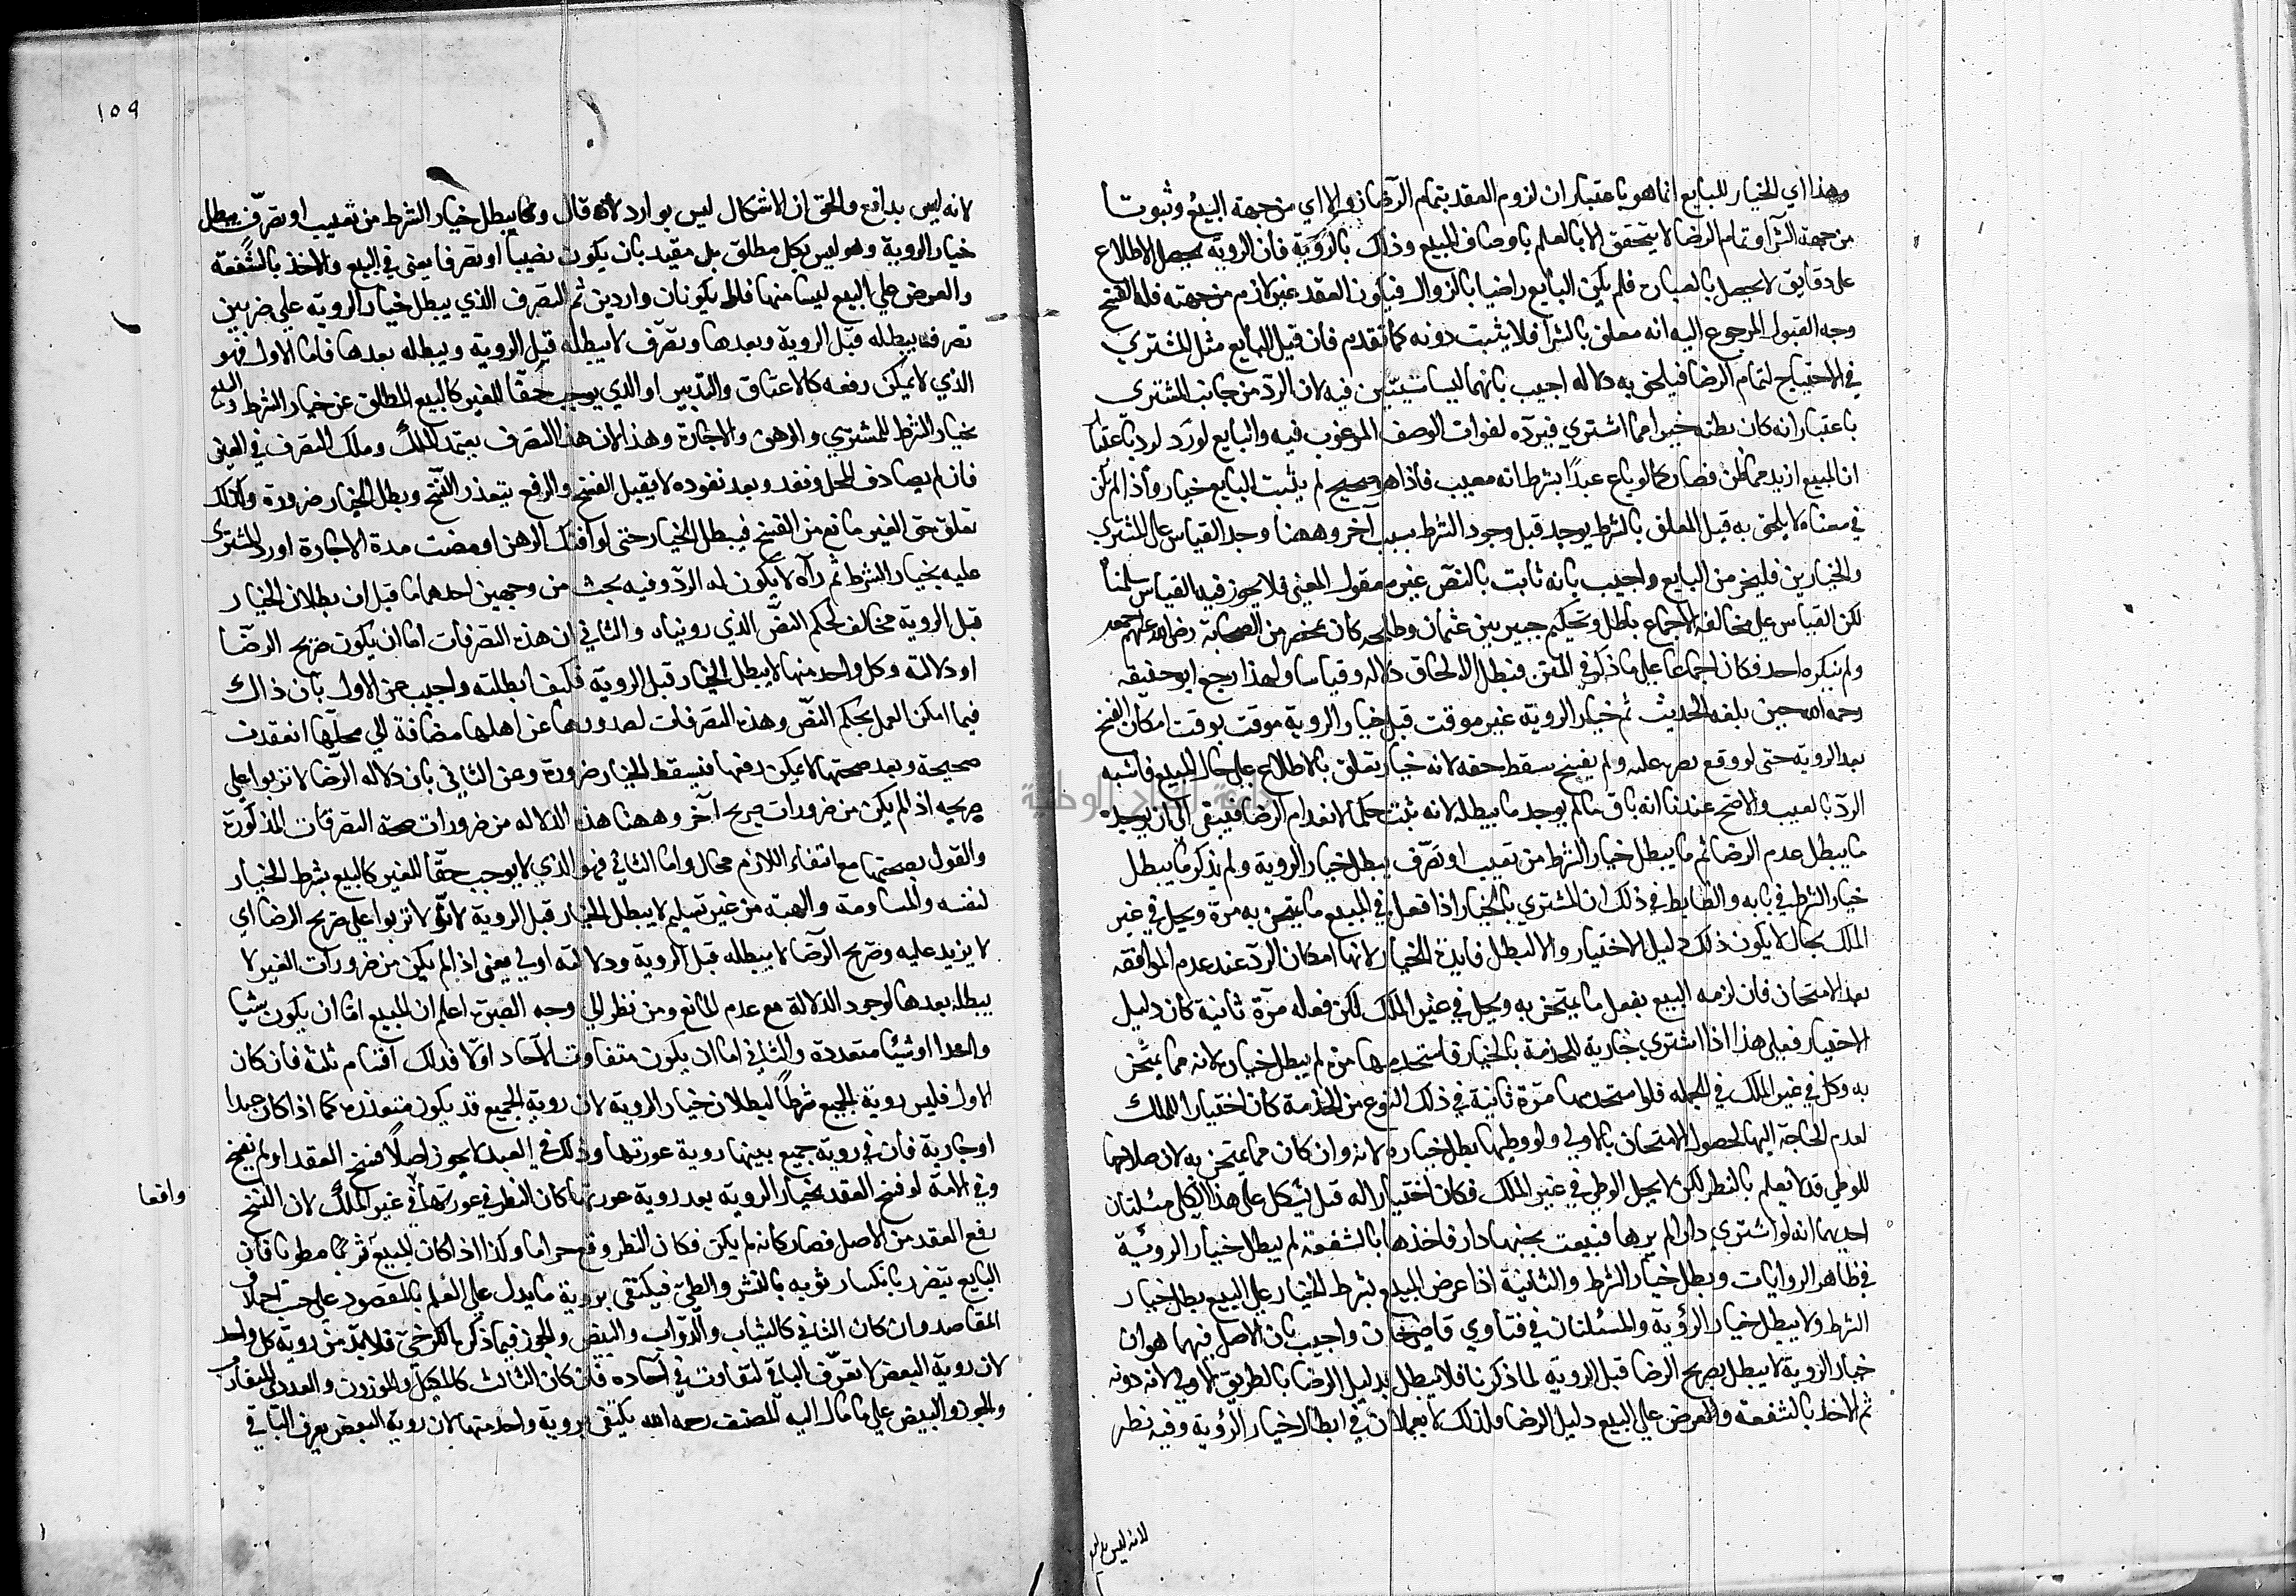 وهذا اي الخيار للبايع انما هو باعتبار ان لزوم العقد بتمام الرضا زوالا اي من جهة البيع وثبوتا
من جهة الشرا وتمام الرضا لا يتحقق الا بالعلم باوصاف المبيع وذلك بالروية فان الروية يحصل الاطلاع
على دقايق لا يحصل بالعبارة فلم يكن البايع راضيا بالزوال فيكون العقد غير لازم من جهته فله الفسخ
وجه القبول المرجوع اليه انه معلق بالشرا فلا يثبت دونه كما تقدم فان قيل البايع مثل المشتري
في الاحتياج لتمام الرضا فيلحق به دلالة اجيب بانهما ليسا سيّين فيه لان الرد من جانب المشتري
باعتبار انه كان يظنه خيرا مما اشتري فيرده لفوات الوصف المرغوب فيه والبايع لو رد لرد باعتبا
ان المبيع ازيد مما ظن فصار كما لو باع عبدًا بشرط انه معيب فاذا هو صحيح لم يثبت للبايع خيار واذا لم يكن
في معناه لا يلحق به قيل المعلق بالشرط يوجد قبل وجود الشرط بسبب آخر وههنا وجد القياس على المشتري
والخيارين فليخر من البايع واجيب بانه ثابت بالنص غير معقول المعنى فلا يجوز فيه القياس سلمنا
لكن القياس على مخالفة الاجماع باطل وتحكيم جبير بين عثمان وطلحة كان بمحضر من الصحابة رضي الله عنهم اجمعين
ولم ينكره احد فكان اجماعا على ما ذكر في المتن فبطل الالحاق دلالة وقياسا ولهذا رجع ابو حنيفة
رحمه الله حين بلغه الحديث ثم خيار الروية غير موقت قيل خيار الروية موقت بوقت امكان الفسخ
بعد الروية حتى لو وقع بصره عليه ولم يفسخ سقط حقه لانه خيار تعلق بالاطلاع على حال المبيع فاشبه
الرد بالعيب والاصح عندنا انه باق ما لم يوجد ما يبطله لانه يثبت حكما لانعدام الرضا فيبقى الى ان يوجد
ما يبطل عدم الرضا ثم ما يبطل خيار الشرط من تعيب او تصرف يبطل خيار الروية ولم يذكر ما يبطل
خيار الشرط في بابه والضابط في ذلك ان المشتري بالخيار اذا فعل في المبيع ما يمتحن به مرة ويحل في غير
الملك بحال لا يكون ذلك دليل الاختيار والا لبطل فايدة الخيار لانها امكان الرد عند عدم الموافقة
بعد الامتحان فان لزمه البيع بفعل ما يمتحن به ويحل في غير الملك لكن فعله مرة ثانية كان دليل
الاختيار فعلى هذا اذا اشتري جارية للخدمة بالخيار فاستخدمها مرة لم يبطل خياره لانه مما يمتحن
به وكل في غير الملك في الجملة فلو استخدمها مرة ثانية في ذلك النوع من الخدمة كان اختيارا للملك
لعدم الحاجة اليها لحصول الامتحان بالاولى ولو وطيها بطل خياره لانه وان كان مما يمتحن به لان صلاحها
للوطي قد لا يعلم بالنظر لكن لا يحل الوطي في غير الملك فكان اختيارا له قيل يشكل على هذا الكلي مسئلتان
احديهما انه لو اشتري دارا لم يرها فبيعت بجنبها دار فاخذها بالشفعة لم يبطل خيار الروئية
في ظاهر الروايات وبطل خيار الشرط والثانية اذا عرض المبيع بشرط الخيار على البيع بطل خيار
الشرط ولا يبطل خيار الرؤية والمسئلتان في فتاوي قاضيخان واجيب بان الاصل فيهما هو ان
خيار الروية لا يبطل بصريح الرضا قبل الروية لما ذكرنا فلا يبطل بدليل الرضا بالطريق الاولى لانه دونه
ثم الاخذ بالشفعة والعرض على البيع دليل الرضا فلذلك لا يعملان في ابطال خيار الرؤية وفيه نظر
لانه ليس بدافع
١٥٩
لانه ليس بدافع والحق ان الاشكال ليس بوارد لانه قال وما يبطل خيار الشرط من تعيب او تصرف يبطل
خيار الروية وهو ليس بكل مطلق بل مقيد بان يكون تعيبا او تصرفا يعني في المبيع والاخذ بالشفعة
والعرض على البيع ليسا منهما فلا يكونان واردين ثم التصرف الذي يبطل خيار الروية على ضربين
تصرف يبطله قبل الروية وبعدها وتصرف لا يبطله قبل الروية ويبطله بعدها فاما الاول فهو
الذي لا يمكن رفعه كالاعتاق والتدبير او الذي يوجب حقا للغير كالبيع المطلق عن خيار الشرط والبيع
بخيار الشرط للمشتري والرهن والاجارة وهذا لان هذا التصرف يعتمد الملك وملك التصرف في العين
فان لم يصادف المحل ونفذ وبعد نفوذه لا يقبل الفسخ والرفع يتعذر الفسخ وبطل الخيار ضرورة وكذلك
تعلق حق الغير مانع من الفسخ فيبطل الخيار حتى لو افتك الرهن او مضت مدة الاجارة او رد المشتري
عليه بخيار الشرط ثم رآه لا يكون له الرد وفيه بحث من وجهين احدهما ما قيل ان بطلان الخيار
قبل الروية مخالف لحكم النص الذي رويناه والثاني ان هذه التصرفات اما ان يكون صريح الرضا
او دلالته وكل واحد منها لا يبطل الخيار قبل الروية فكيف ابطلته واجيب عن الاول بان ذاك
فيما امكن العمل بحكم النص وهذه التصرفات لصدورها عن اهلها مضافة الي محلها انعقدت
صحيحة وبعد صحتها لا يمكن رفعها فيسقط الخيار ضرورة وعن الثاني بان دلالة الرضا لا تربوا على
صريحه اذا لم يكن من ضرورات صريح آخر وههنا هذه الدلالة من ضرورات صحة التصرفات المذكورة
والقول بصحتها مع انتفاء اللازم محال واما الثاني فهو الذي لا يوجب حقا للغير كالبيع بشرط الخيار
لنفسه والمساومة والهبة من غير تسليم لا يبطل الخيار قبل الروية لانه لا تربوا على صريح الرضا اي
لا يزيد عليه وصريح الرضا لا يبطله قبل الروية ودلالته اولى يعني اذا لم يكن من ضرورات الغير لا
يبطله بعدها لوجود الدلالة مع عدم المانع ومن نظر الي وجه الصبرة اعلم ان المبيع اما ان يكون شيئا
واحدا او شيئا متعددة والثاني اما ان يكون متفاوت الآحاد اولا فذلك اقسام ثلثة فان كان
الاول فليس روية الجميع شرطا لبطلان خيار الروية لان روية الجميع قد يكون متعذرة كما اذا كان عبدا
او جارية فان في روية جميع بدنها روية عورتها وذلك في العبد لا يجوز اصلا فسخ العقد او لم يفسخ
وفي الامة لو فسخ العقد بخيار الروية بعد روية عورتها كان النظر في عورتها في غير الملك لان الفسخ
واقعا
رفع العقد من الاصل فصار كانه لم يكن فكان النظر وقع حراما وكذا اذا كان المبيع ثوبا مطويا فان
البايع يتضرر بانكسار ثوبه بالنشر والطي فيكتفى بروية ما يدل على العلم بالمقصود على حسب اختلاف
المقاصد وان كان الثاني كالثياب والدواب والبيض والجوز فيما ذكره الكرخي فلا بد من روية كل واحد
لان روية البعض لا تعرف الباقي لتفاوت في آحاده فان كان الثالث كالمكيل والموزون والعددي المتقارب
والجوز والبيض على ما مال اليه المصنف رحمه الله يكتفى بروية واحد منها لان روية البعض يعرف الباقي